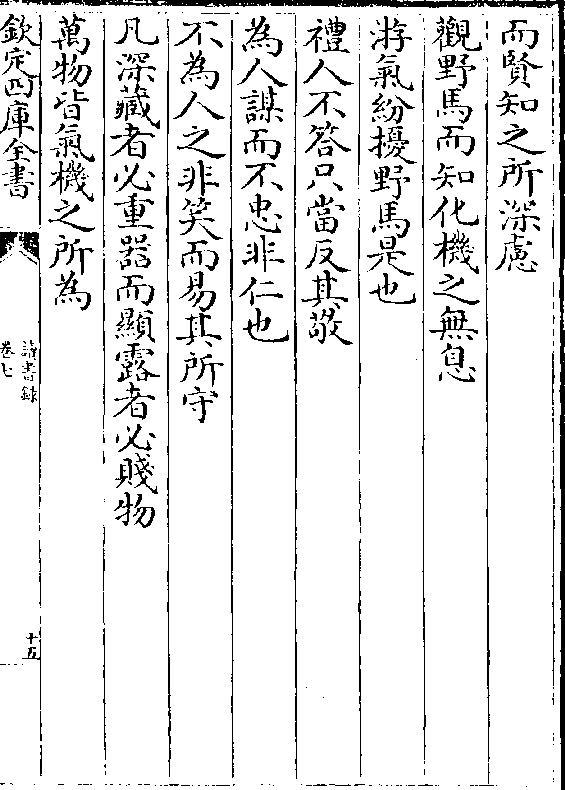 而賢知之所深慮
觀野馬而知化機之無息
游氣紛擾野馬是也
禮人不答只當反其敬
為人謀而不忠非仁也
不為人之非笑而易其所守
凡深藏者必重器而顯露者必賤物
萬物皆氣機之所為
欽定四庫全書
讀書錄
卷七
十五